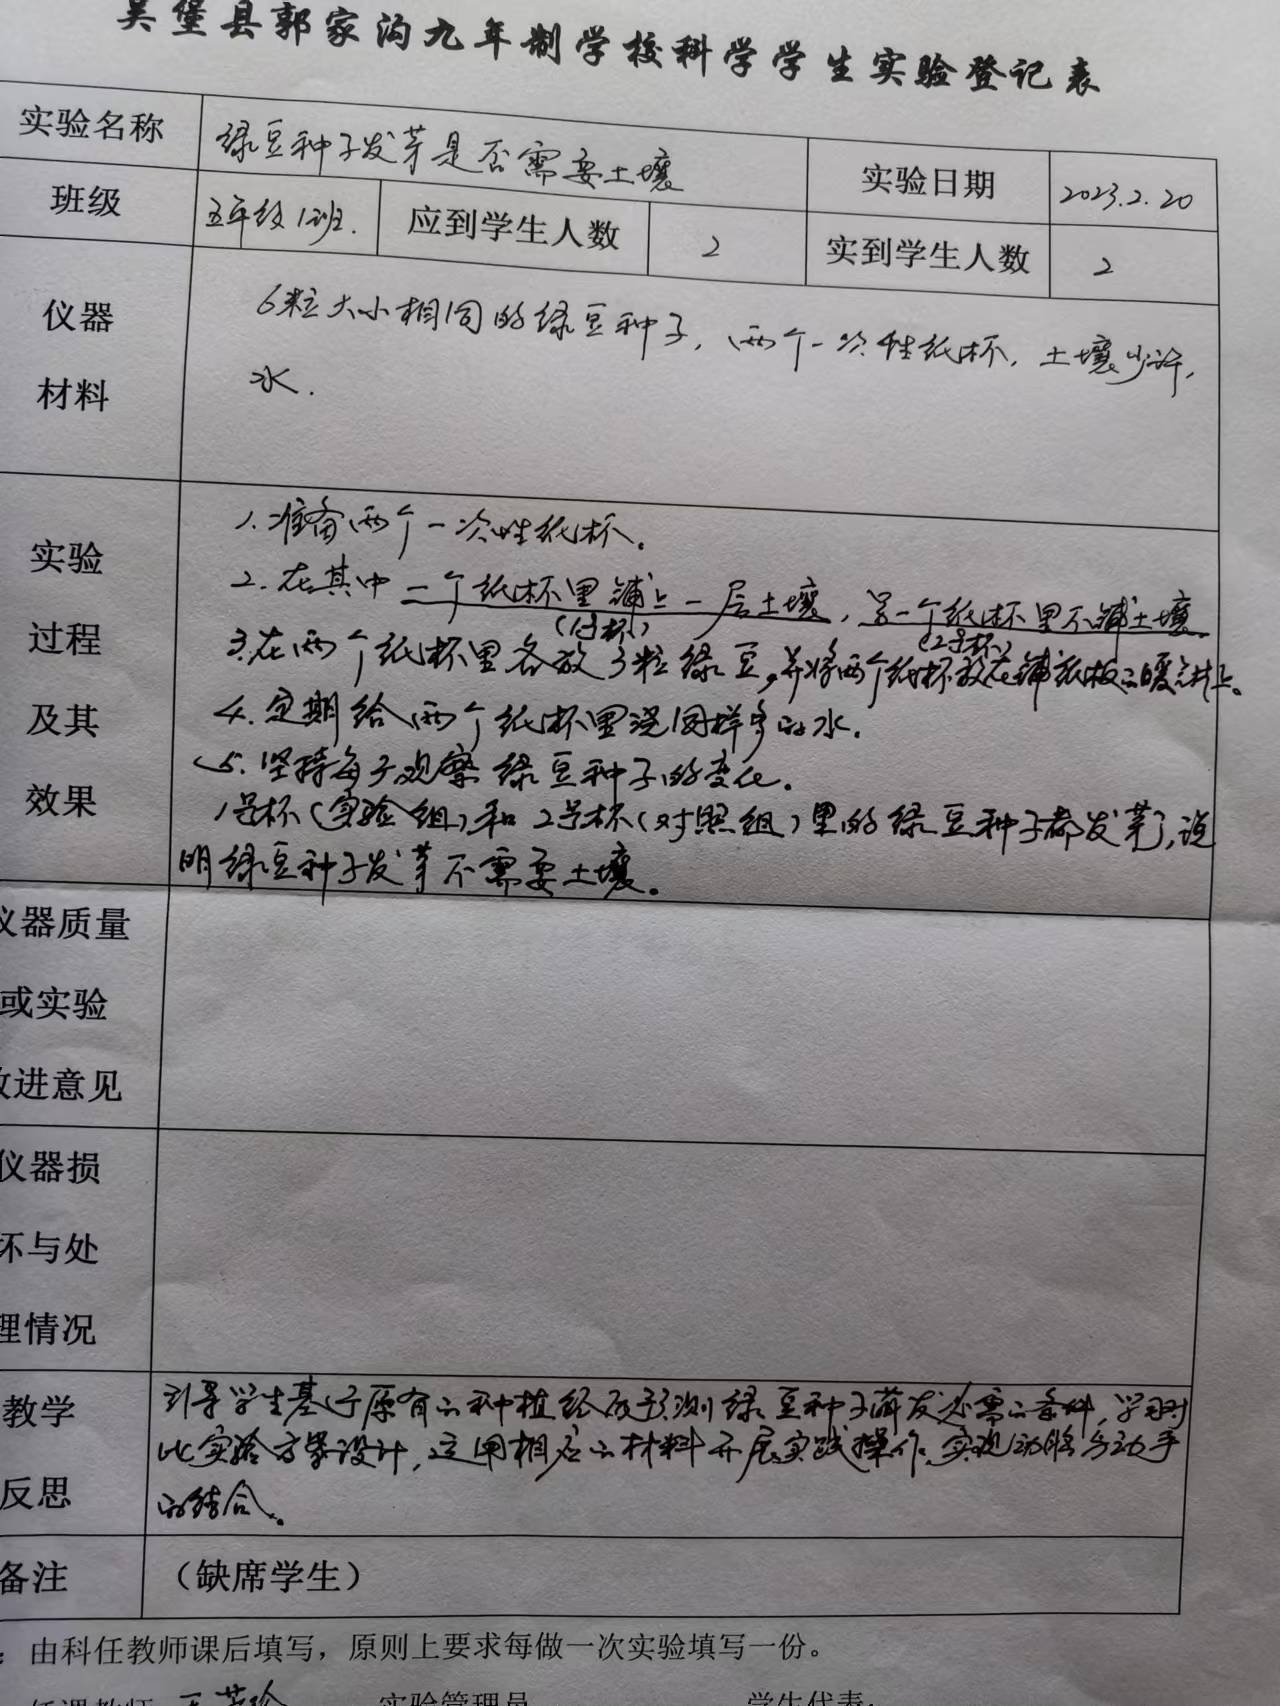 吴堡县郭家沟九年制学校科学学生实验登记表
实验名称 绿豆种子发芽是否需要土壤 实验日期 2023.2.20
班级 五年级1班. 应到学生人数 2 实到学生人数 2
仪器
材料
6粒大小相同的绿豆种子,两个一次性纸杯,土壤少许,
水.
实验
过程
及其
效果
1.准备两个一次性纸杯。
2.在其中一个纸杯里铺上一层土壤,另一个纸杯里不铺土壤
(1号杯) (2号杯)
3.在两个纸杯里各放3粒绿豆,并将两个纸杯放在铺纸板的暖气片上。
4.定期给两个纸杯里浇同样多的水.
5.坚持每天观察绿豆种子的变化.
1号杯(实验组)和2号杯(对照组)里的绿豆种子都发芽了,说
明绿豆种子发芽不需要土壤。
仪器质量
或实验
改进意见
仪器损
坏与处
理情况
教学
反思
引导学生基于原有的种植经历预测绿豆种子萌发必需的条件,学习对
比实验方案设计,选用相应的材料开展实践操作,实现动脑与动手
的结合。
备注 (缺席学生)
:由科任教师课后填写,原则上要求每做一次实验填写一份。
任课教师 实验管理员 学生代表: